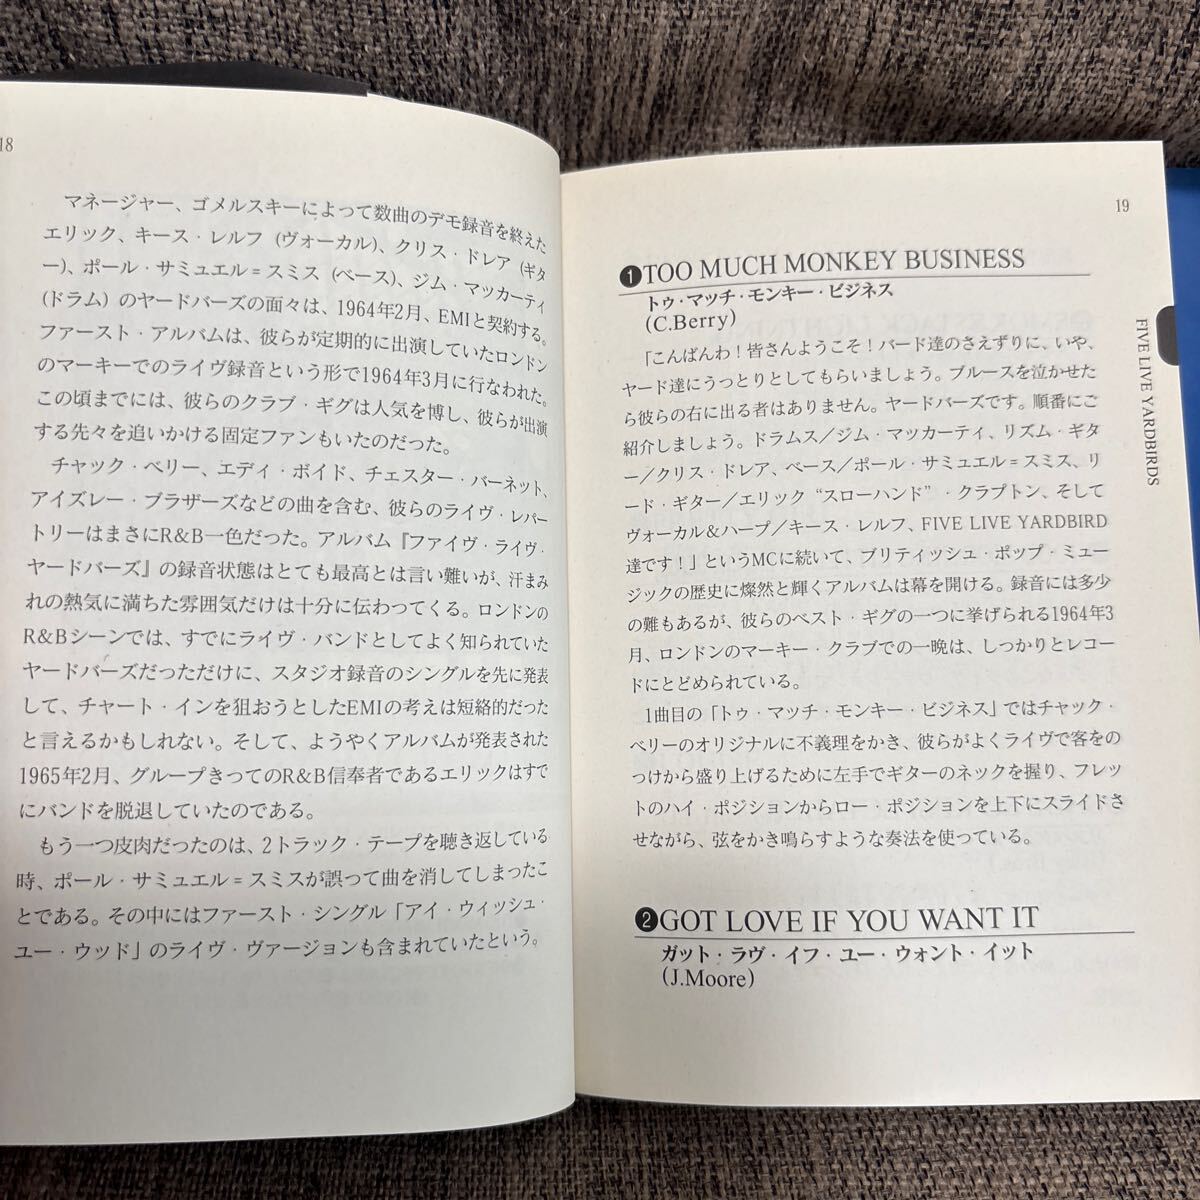 18
マネージャー、ゴメルスキーによって数曲のデモ録音を終えた
エリック、キース・レルフ(ヴォーカル)、クリス・ドレア(ギタ
ー)、ポール・サミュエル=スミス(ベース)、ジム・マッカーティ
(ドラム)のヤードバーズの面々は、1964年2月、EMIと契約する。
ファースト・アルバムは、彼らが定期的に出演していたロンドン
のマーキーでのライヴ録音という形で1964年3月に行なわれた。
この頃までには、彼らのクラブ・ギグは人気を博し、彼らが出演
する先々を追いかける固定ファンもいたのだった。
チャック・ベリー、エディ・ボイド、チェスター・バーネット、
アイズレー・ブラザーズなどの曲を含む、彼らのライヴ・レパー
トリーはまさにR&B一色だった。アルバム『ファイヴ・ライヴ・
ヤードバーズ』の録音状態はとても最高とは言い難いが、汗まみ
れの熱気に満ちた雰囲気だけは十分に伝わってくる。ロンドンの
R&Bシーンでは、すでにライヴ・バンドとしてよく知られていた
ヤードバーズだっただけに、スタジオ録音のシングルを先に発表
して、チャート・インを狙おうとしたEMIの考えは短絡的だった
と言えるかもしれない。そして、ようやくアルバムが発表された
1965年2月、グループきってのR&B信奉者であるエリックはすで
にバンドを脱退していたのである。
もう一つ皮肉だったのは、2トラック・テープを聴き返している
時、ポール・サミュエル=スミスが誤って曲を消してしまったこ
とである。その中にはファースト・シングル「アイ・ウィッシュ・
ユー・ウッド」のライヴ・ヴァージョンも含まれていたという。
19
❶TOO MUCH MONKEY BUSINESS
トゥ・マッチ・モンキー・ビジネス
(C.Berry)
「こんばんわ!皆さんようこそ!バード達のさえずりに、いや、
ヤード達にうっとりとしてもらいましょう。ブルースを泣かせた
ら彼らの右に出る者はありません。ヤードバーズです。順番にご
紹介しましょう。ドラムス/ジム・マッカーティ、リズム・ギタ
ー/クリス・ドレア、ベース/ポール・サミュエル=スミス、リ
ード・ギター/エリック“スローハンド”・クラプトン、そして
ヴォーカル&ハープ/キース・レルフ、FIVE LIVE YARDBIRD
達です!」というMCに続いて、ブリティッシュ・ポップ・ミュー
ジックの歴史に燦然と輝くアルバムは幕を開ける。録音には多少
の難もあるが、彼らのベスト・ギグの一つに挙げられる1964年3
月、ロンドンのマーキー・クラブでの一晩は、しっかりとレコー
ドにとどめられている。
1曲目の「トゥ・マッチ・モンキー・ビジネス」ではチャック・
ベリーのオリジナルに不義理をかき、彼らがよくライヴで客をの
っけから盛り上げるために左手でギターのネックを握り、フレッ
トのハイ・ポジションからロー・ポジションを上下にスライドさ
せながら、弦をかき鳴らすような奏法を使っている。
❷GOT LOVE IF YOU WANT IT
ガット・ラヴ・イフ・ユー・ウォント・イット
(J.Moore)
FIVE LIVE YARDBIRDS